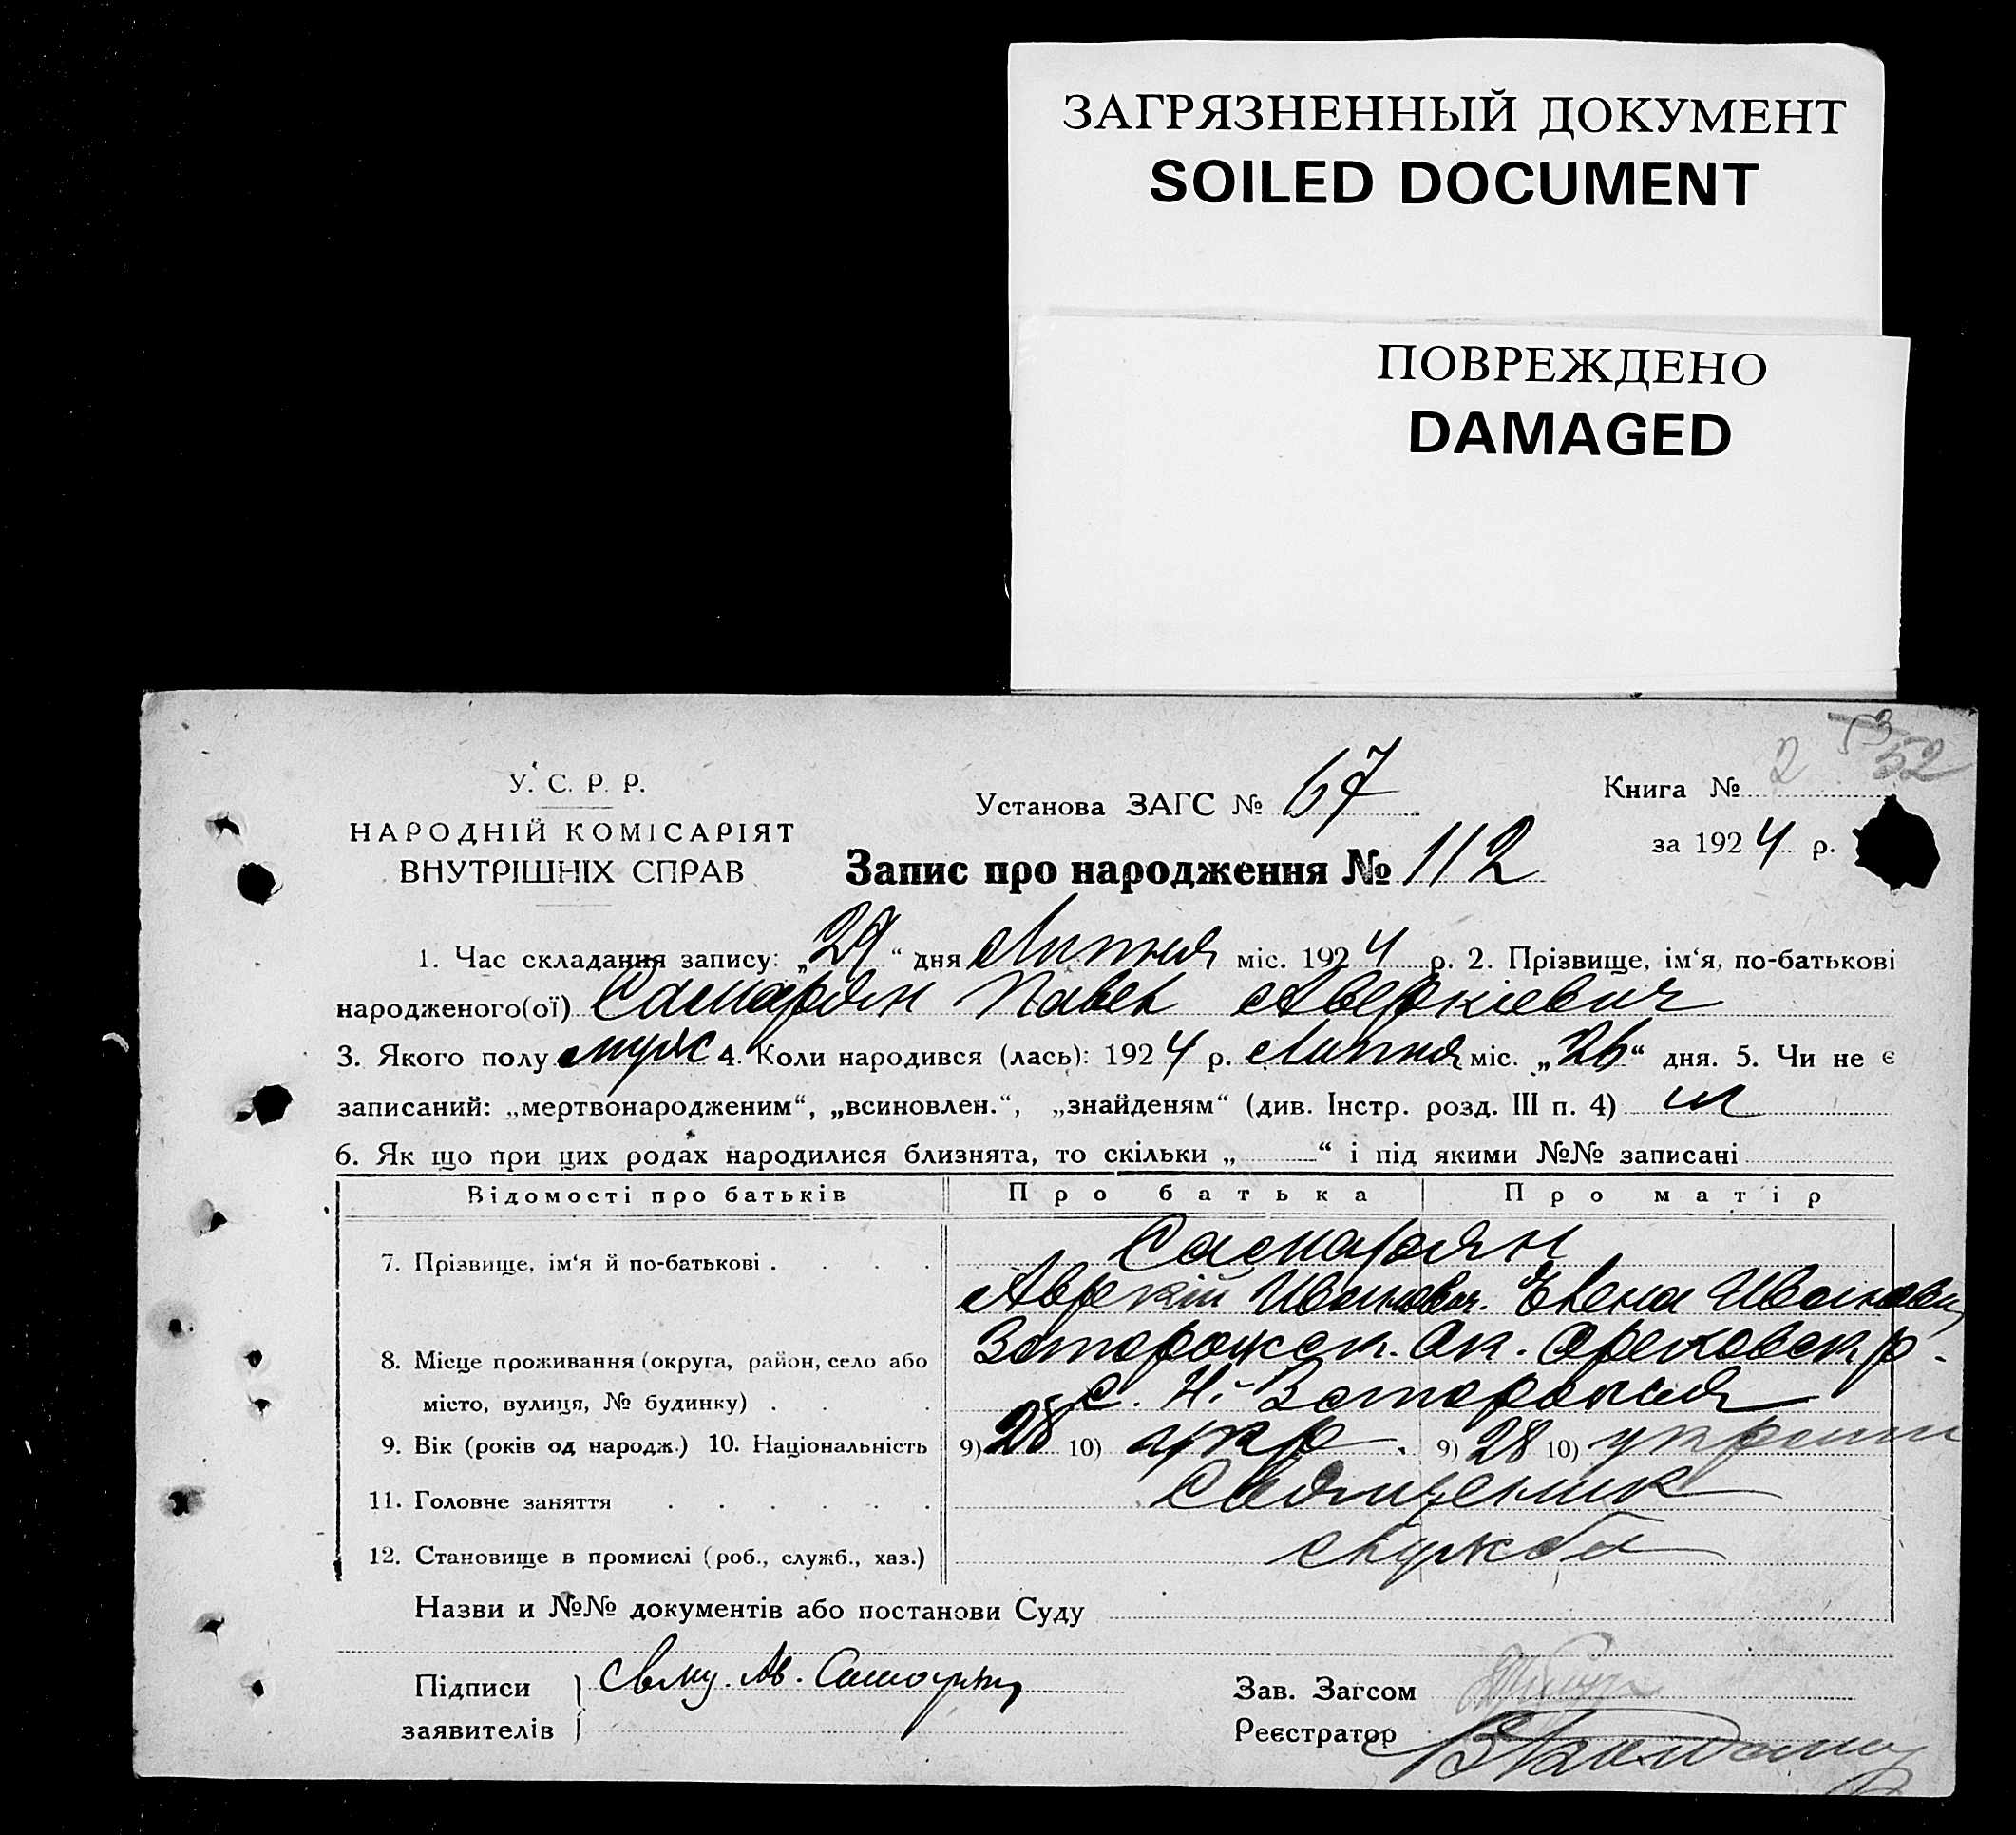 ЗАГРЯЗНЕННЫЙ ДОКУМЕНТ
SOILED DOCUMENT
ПОВРЕЖДЕНО
DAMAGED
52
У. С. Р. Р.
НАРОДНІЙ КОМІСАРІЯТ
ВНУТРІШНІХ СПРАВ
Установа ЗАГС № 67
Книга № 2
за 1924 р.
Запис про народження № 112
1. Час складання запису: „29“ дня Липня міс. 1924 р. 2. Прізвище, ім‘я, по-батькові
народженого(ої) Самарян Павел Аверкіевич
3. Якого полу муж 4. Коли народився (лась): 1924 р. Липня міс. „26“ дня. 5. Чи не є
записаний: „мертвонародженим“, „всиновлен.“, „знайденям“ (див. Інстр. розд. III п. 4)
6. Як що при цих родах народилися близнята, то скільки „ “ і під якими №№ записані
Відомості про батьків Про батька Про матір
7. Прізвище, ім‘я й по-батькові Самарян
Аверкій Иванович. Елена Ивановн
8. Місце проживання (округа, район, село або Запорожск. Ок. Ореховск р.
місто, вулиця, № будинку) с. Н.-Запорожия
9. Вік (років од народж.) 10. Національність 9) 28 10) укр. 9) 28 10) украин
11. Головне заняття Священик
12. Становище в промислі (роб., служб., хаз.) служба
Назви и №№ документів або постанови Суду
Підписи Свящ. Ав. Самарян
заявителів
Зав. Загсом
Реєстратор